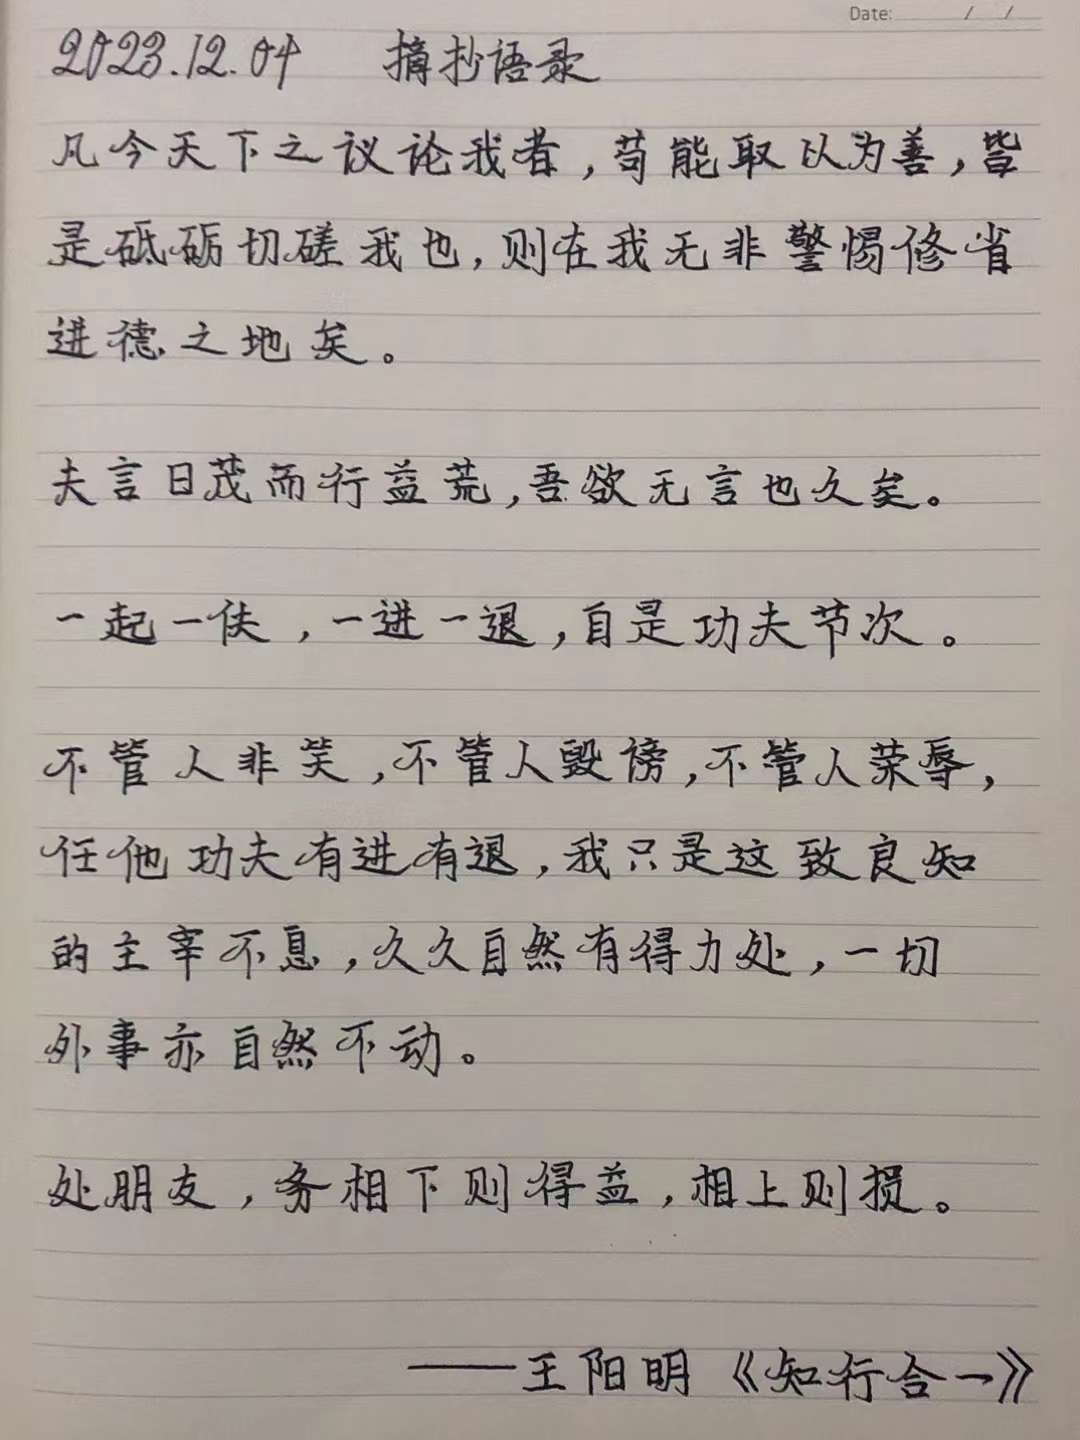 Date: / /
2023.12.04 摘抄语录
凡今天下之议论我者,苟能取以为善,皆
是砥砺切磋我也,则在我无非警惕修省
进德之地矣。
夫言日茂而行益荒,吾欲无言也久矣。
一起一伏,一进一退,自是功夫节次。
不管人非笑,不管人毁谤,不管人荣辱,
任他功夫有进有退,我只是这致良知
的主宰不息,久久自然有得力处,一切
外事亦自然不动。
处朋友,务相下则得益,相上则损。
——王阳明《知行合一》